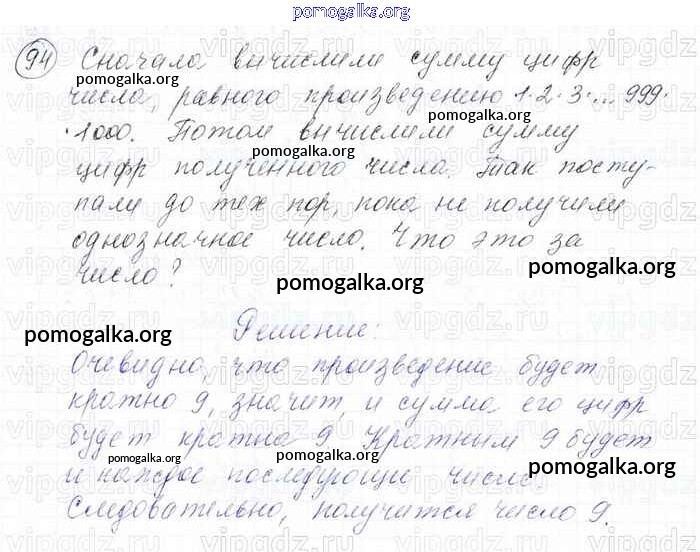 pomogalka.org
94 Сначала вычислили сумму цифр
pomogalka.org
числа, равного произведению 1·2·3·... 999·
pomogalka.org
·1000. Потом вычислили сумму
цифр полученного числа. Так посту-
pomogalka.org
пали до тех пор, пока не получили
однозначное число. Что это за
число?
pomogalka.org
pomogalka.org
pomogalka.org
Решение:
Очевидно, что произведение будет
pomogalka.org
кратно 9, значит, и сумма его цифр
будет кратна 9. Кратным 9 будет
pomogalka.org
и каждое последующие число.
pomogalka.org
следовательно, получится число 9.